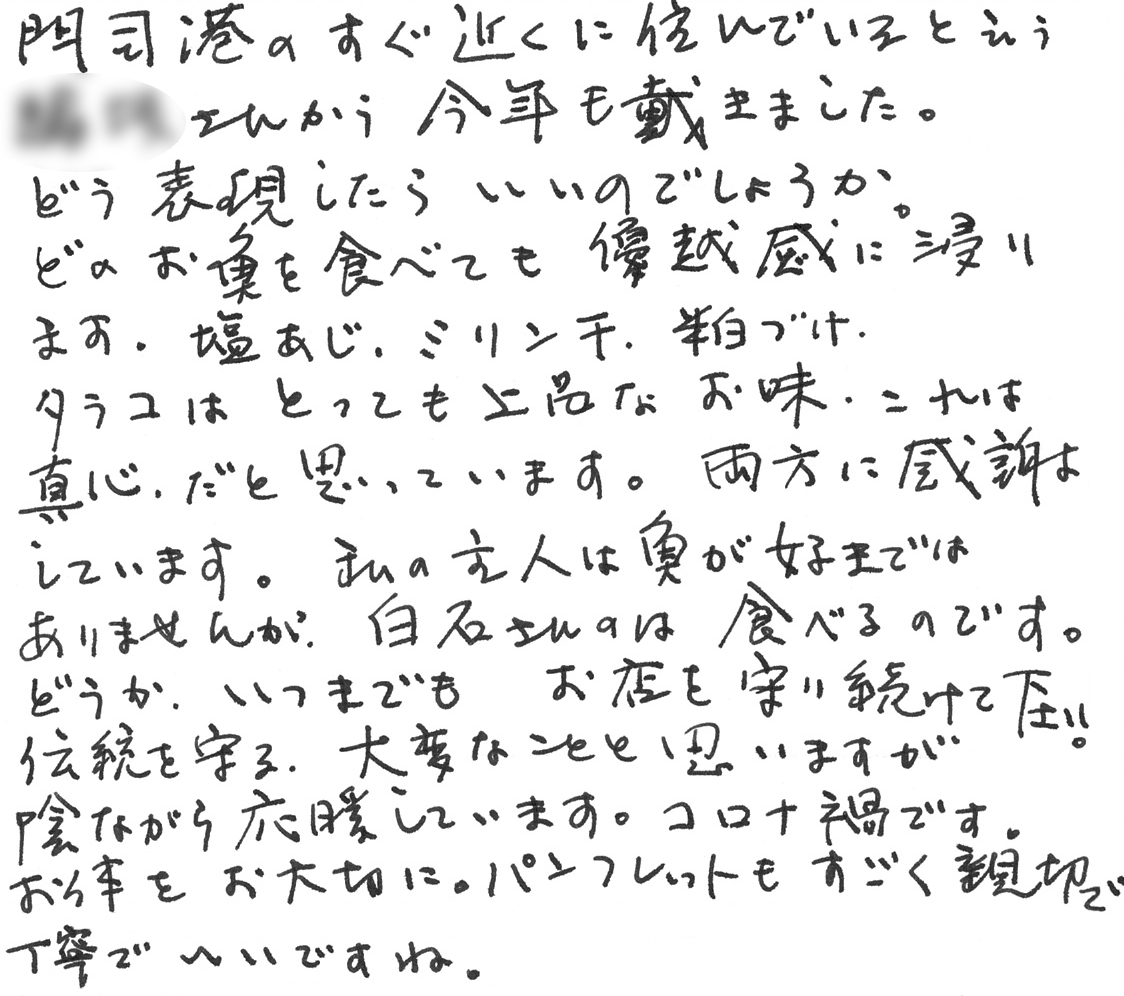 門司港のすぐ近くに住んでいるという
さんから今年も戴きました。
どう表現したらいいのでしょうか。
どのお魚を食べても優越感に浸り
ます。塩あじ、ミリン干、粕づけ、
タラコはとっても上品なお味、これは
真心、だと思っています。両方に感謝
しています。私の主人は魚が好きでは
ありませんが、白石さんのは食べるのです。
どうか、いつまでもお店を守り続けて下さい!
伝統を守る、大変なことと思いますが
陰ながら応援しています。コロナ禍です。
お体をお大切に。パンフレットもすごく親切で
丁寧でいいですね。